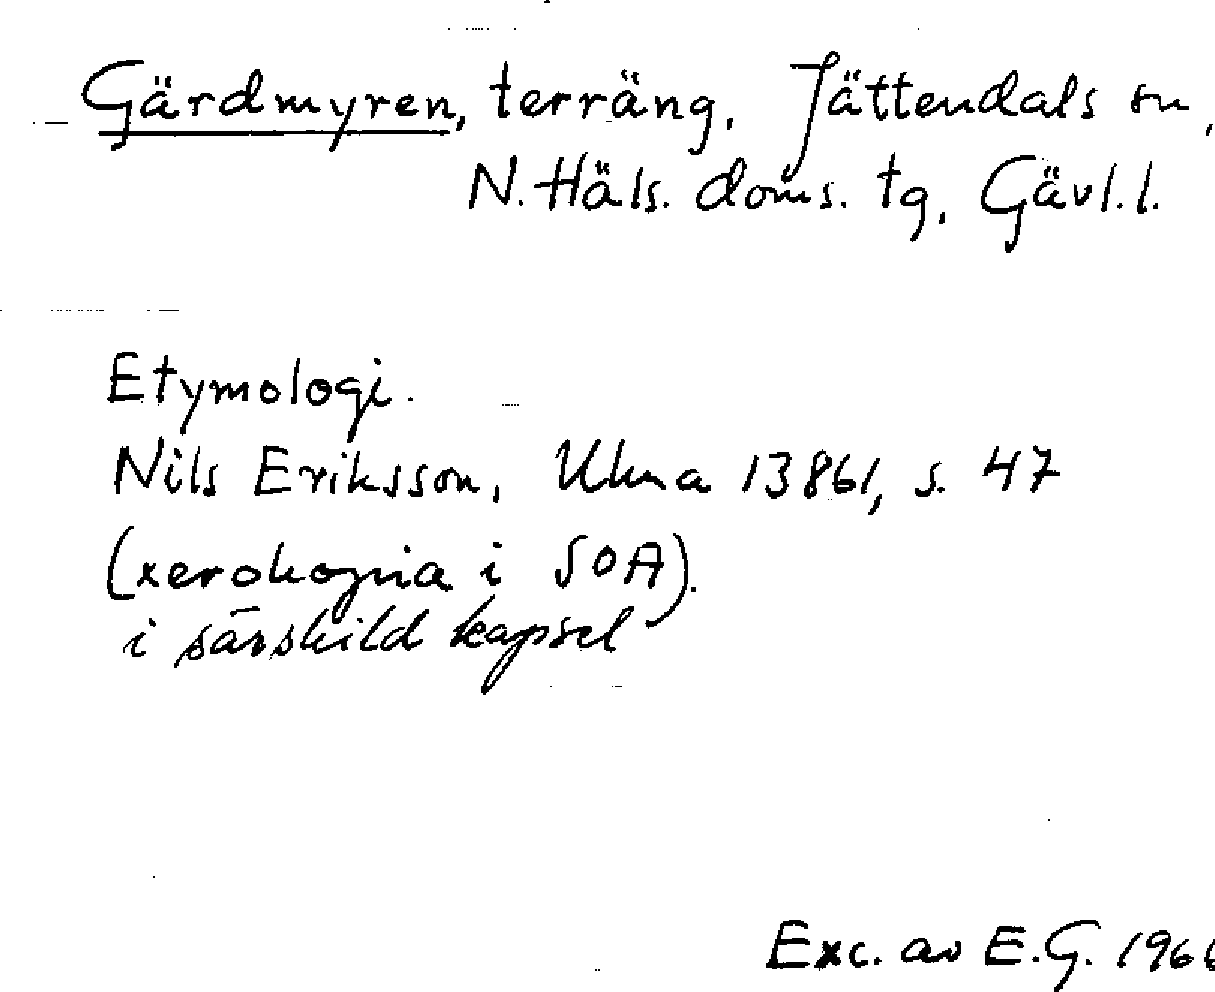 Gärdmyren, terräng, Jättendals sn,
N. Häls. doms. tg, Gävl. l.
Etymologi.
Nils Eriksson, Ulma 13861, s. 47
(xerokopia i SOA).
i särskild kapsel
Exc. av E.G. 1966